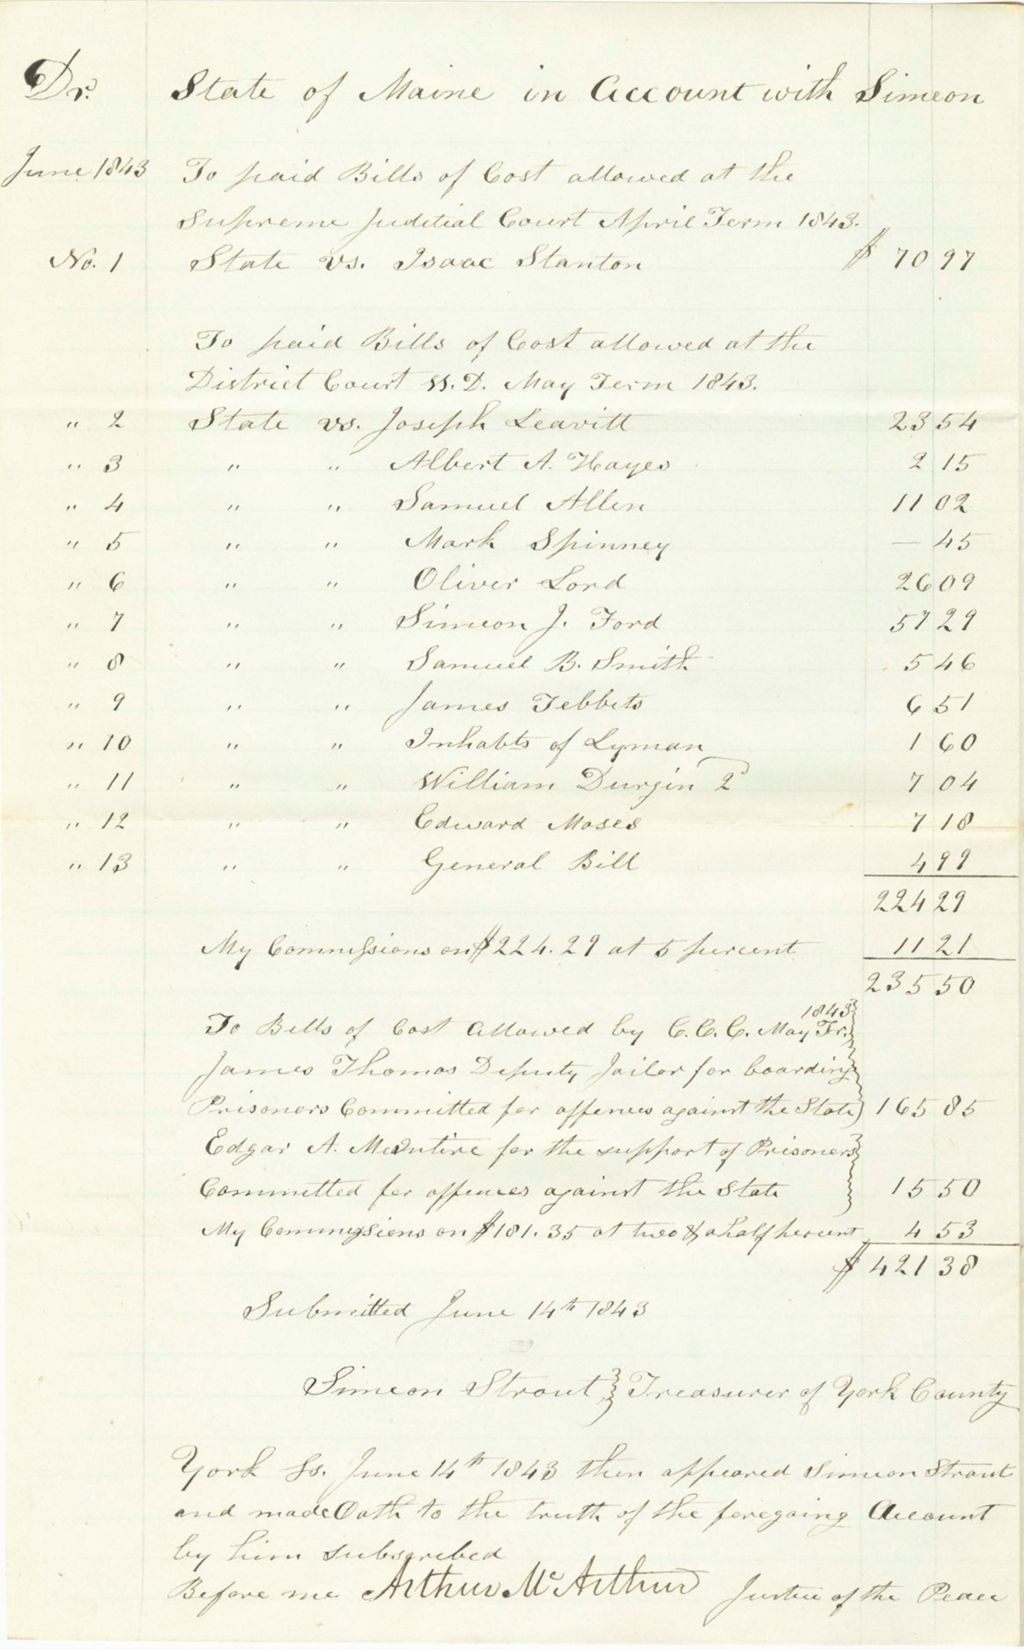 Dr. State of Maine in Account with Simeon
June 1843 To paid Bills of Cost allowed at the
Supreme Juditial Court April Term 1843.
No. 1 State vs. Isaac Stanton $ 70 97
To paid Bills of Cost allowed at the
District Court W.D. May Term 1843.
" 2 State vs. Joseph Leavitt 23 54
" 3 " " Albert A. Hayes 2 15
" 4 " " Samuel Allen 11 02
" 5 " " Mark Spinney — 45
" 6 " " Oliver Lord 26 09
" 7 " " Simeon J. Ford 57 29
" 8 " " Samuel B. Smith 5 46
" 9 " " James Tebbets 6 51
" 10 " " Inhabts of Lyman 1 60
" 11 " " William Durgin 2d 7 04
" 12 " " Edward Moses 7 18
" 13 " " General Bill 4 99
224 29
My Commissions on $224.29 at 5 percent 11 21
235 50
To Bills of Cost allowed by C.C.C. May Tr. 1843
James Thomas Deputy Jailor for boarding
Prisoners Committed for offences against the State 165 85
Edgar A. McIntire for the support of Prisoners
Committed for offences against the State 15 50
My Commissions on $181.35 at two & a half percent 4 53
$ 421 38
Submitted June 14th 1843
Simeon Strout } Treasurer of York County
York Ss. June 14th 1843 then appeared Simeon Strout
and made Oath to the truth of the foregoing Account
by him subscribed
Before me Arthur McArthur Justice of the Peace